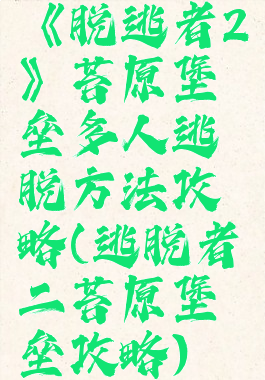 《脱逃者2
》苔原堡
垒多人逃
脱方法攻
略(逃脱者
二苔原堡
垒攻略)